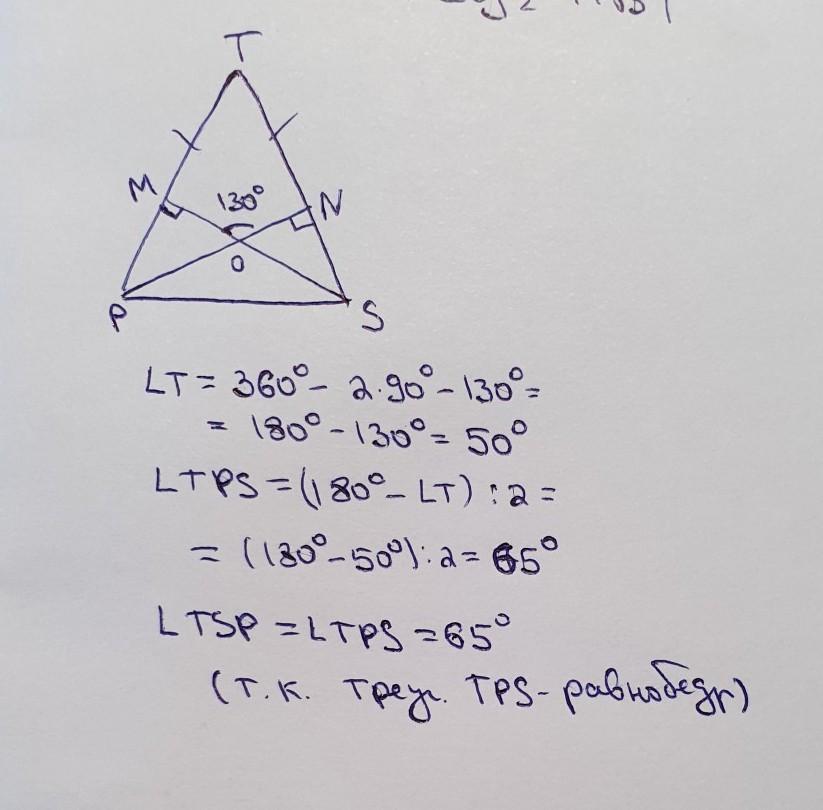 T
M
130°
N
O
P
S
∠T = 360° - 2·90° - 130° =
= 180° - 130° = 50°
∠TPS = (180° - ∠T) : 2 =
= (180° - 50°) : 2 = 65°
∠TSP = ∠TPS = 65°
(т.к. треуг. TPS - равнобедр)